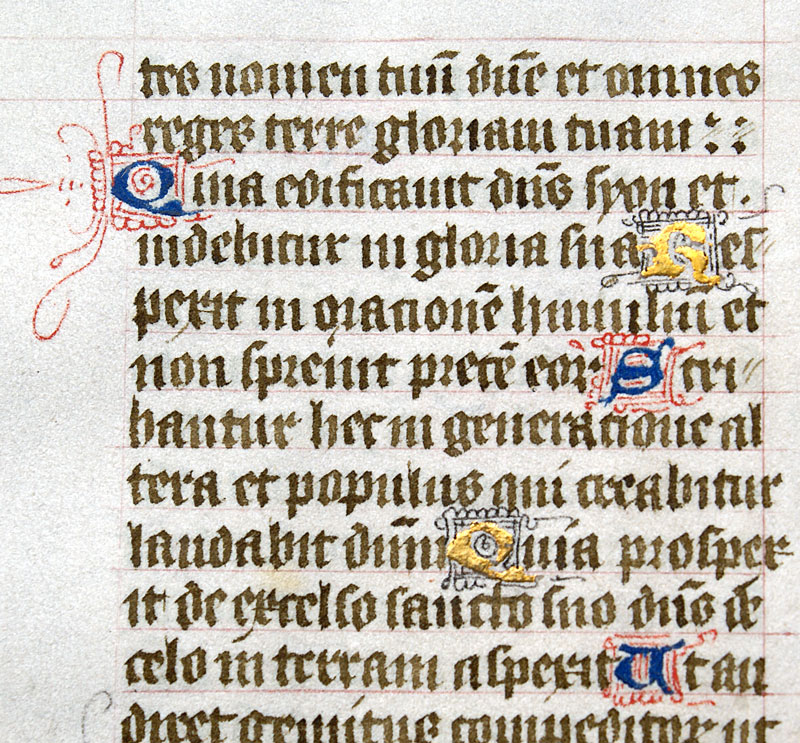 tes nomen tuū dn̄e et omnes
reges terre gloriam tuam :⁊:
Quia edificauit dn̄s syon et.
uidebitur in gloria sua Res
pexit in orationē humiliū et
non spreuit precē eor Scri
bantur hec in generatione al
tera et populus qui creabitur
laudabit dnm̄ Quia prosper
it de excelso sancto suo dn̄s de
celo in terram aspexit Ut au
diret gemitus compeditor ut